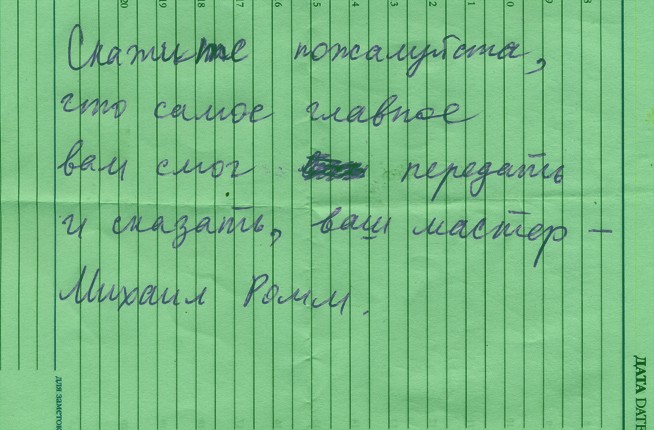 20 19 18 17 16 15 14 13 12 11 10 9 8
Скажите пожалуйста,
что самое главное
вам смог передать
и сказать, ваш мастер –
Михаил Ромм.
ДАТА DATE
ДЛЯ ЗАМЕТОК